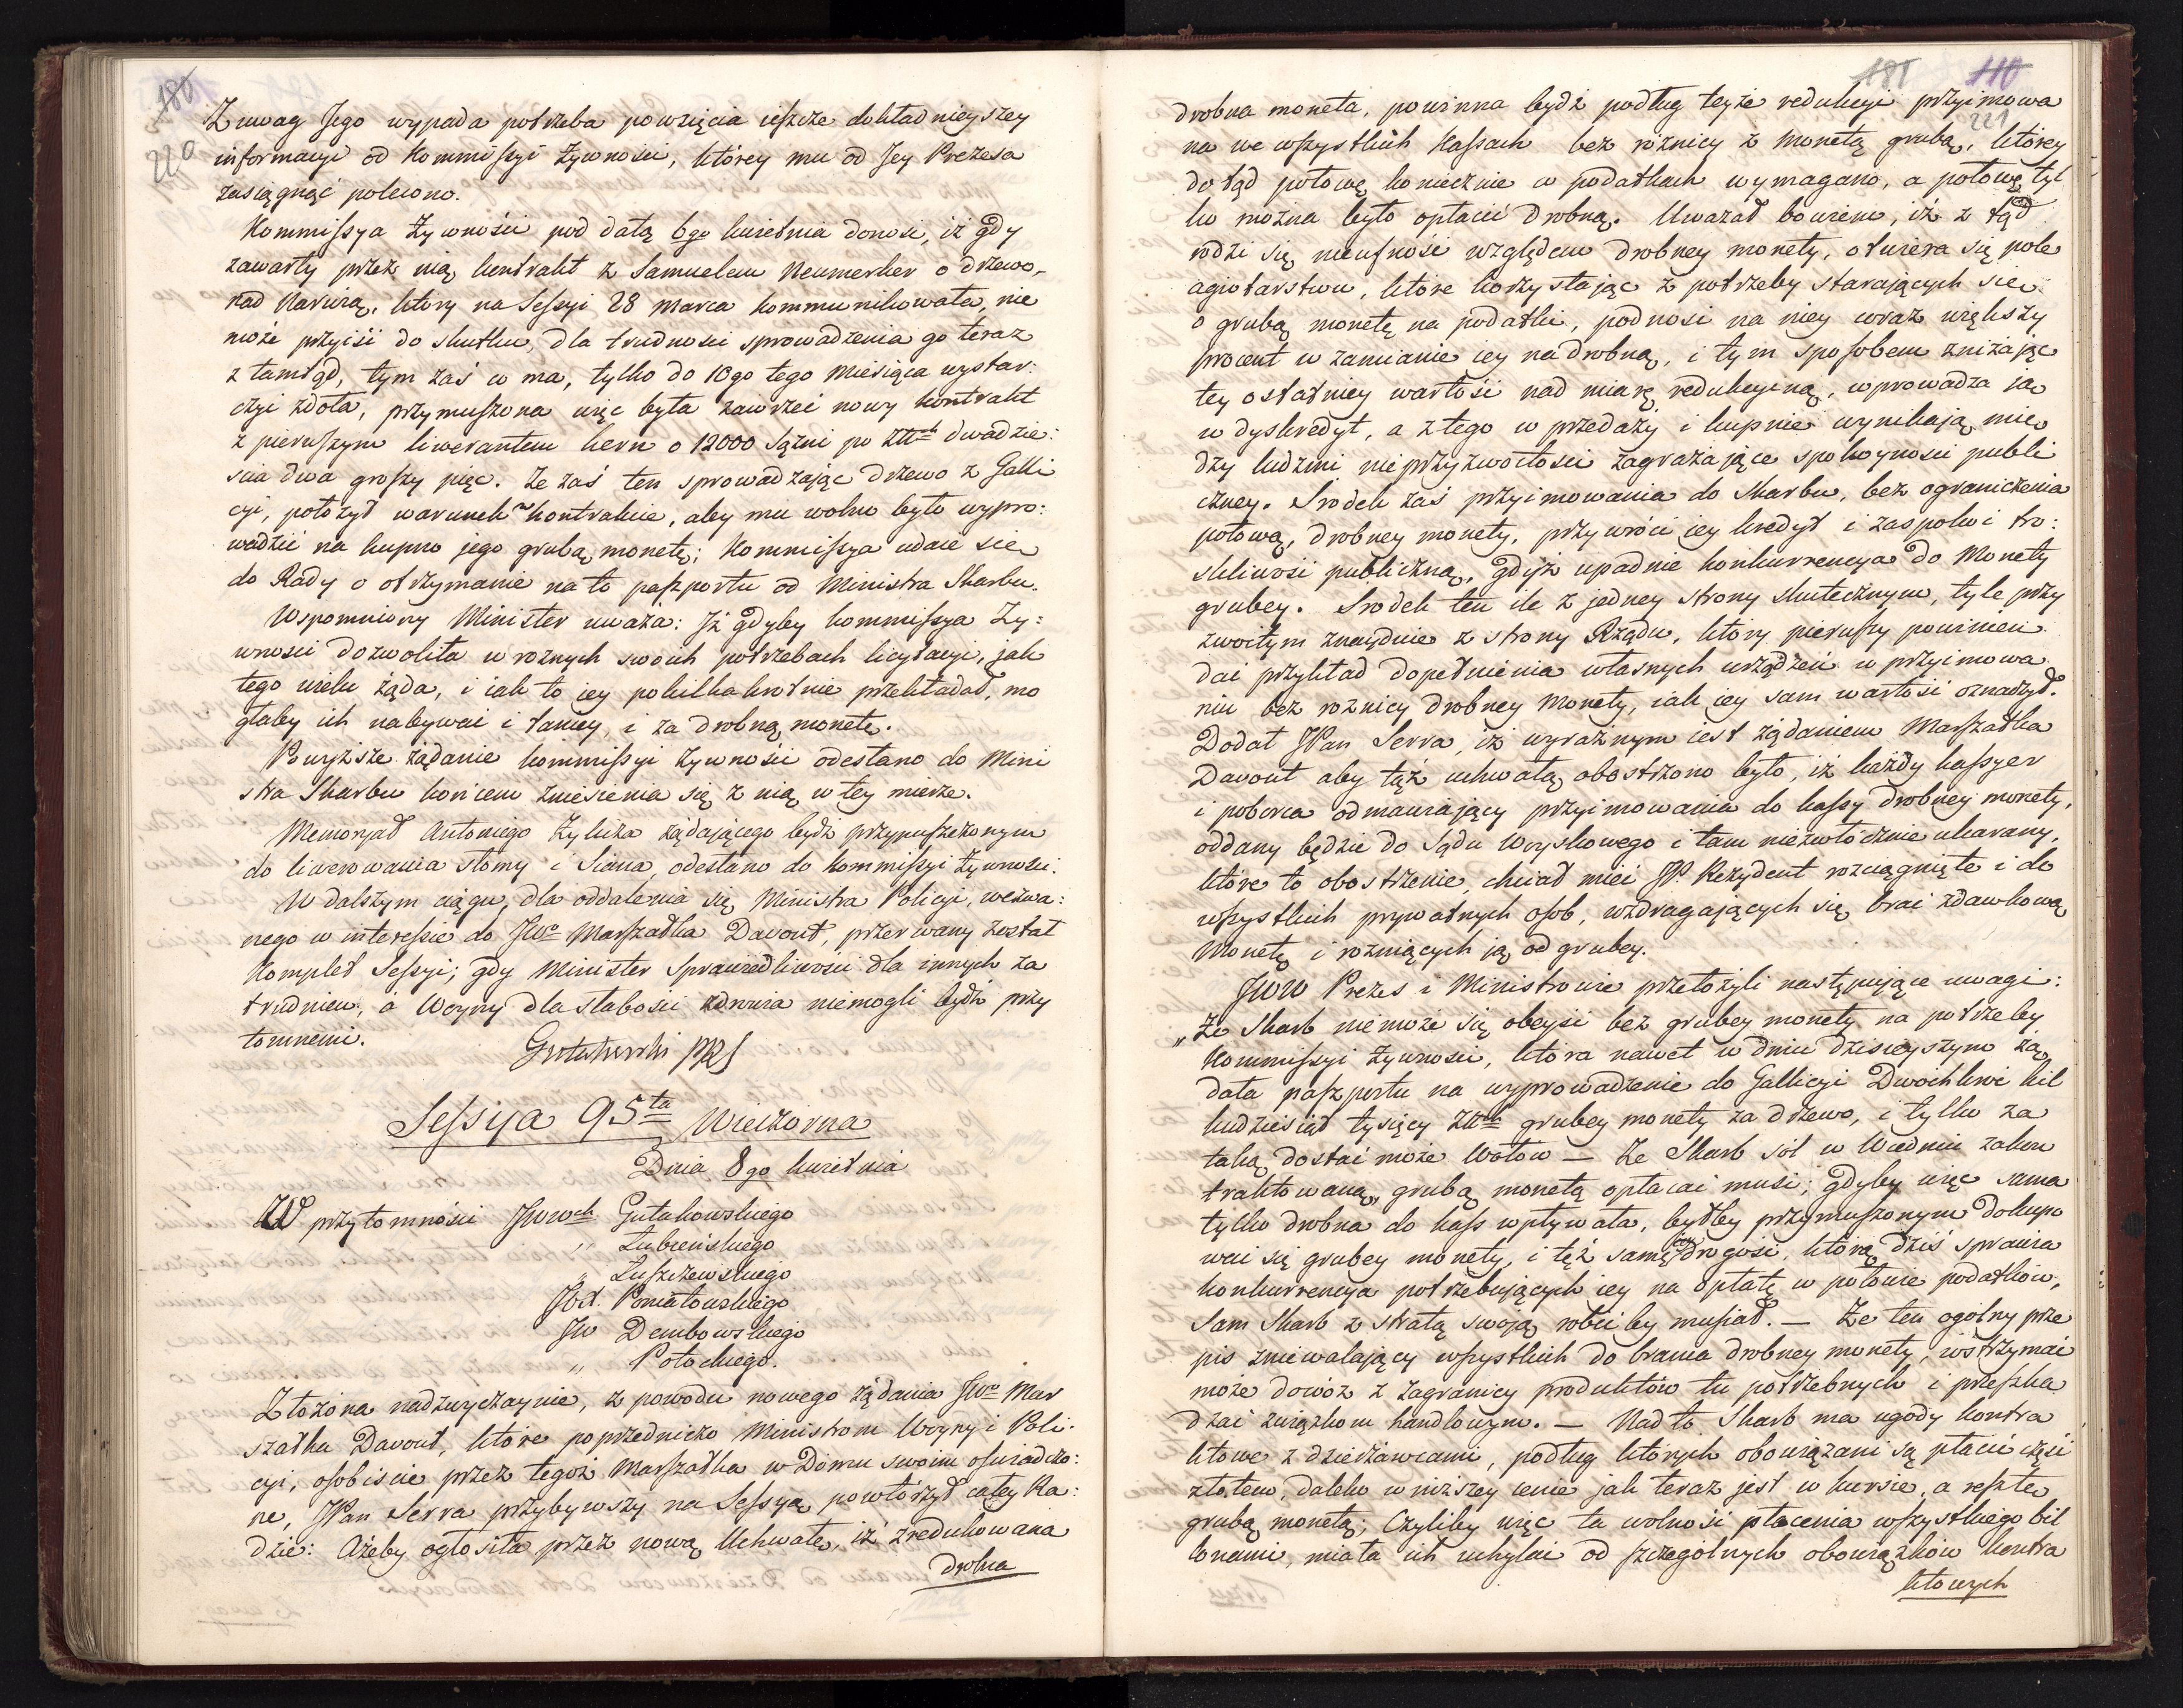 180
220
Z uwag Jego wypada potrzeba powzięcia ieszcze dokładnieyszey
informacyi od Kommissyi Żywności, którey mu od Jey Prezesa
zasiągnąć polecono.
Kommissya Żywności pod datą 6go kwietnia donosi, iż gdy
zawarty przez nią kontrakt z Samuelem Neumerker o drzewo
nad Narwią, który na Sessyi 28 Marca kommunikowała, nie
może przyiść do skutku, dla trudności sprowadzenia go teraz
z tamtąd, tym zaś co ma, tylko do 10go tego Miesiąca wystar:
czyć zdoła, przymuszona więc była zawrzeć nowy kontrakt
z pierwszym liwerantem kern o 12000 Sążni po Złt dwadzie:
scia dwa groszy pięc. Że zaś ten sprowadzając drzewo z Galli
cyi, położył warunek w kontrakcie, aby mu wolno było wypro:
wadzić na kupno jego grubą monetę; Kommissya udaie się
do Rady o otrzymanie na to paszportu od Ministra Skarbu.
Wspomniony Minister uważa: Jż gdyby kommissya Ży:
wności dozwoliła w roznych swoich potrzebach licytacyi, jak
tego wielu żąda, i iak to iey pokilkakrotnie przekładał, mo
głaby ich nabywać i taniey, i za drobną monetę.
Powyższe żądanie kommissyi żywności odesłano do Mini
stra Skarbu końcem zniesienia się z nią w tey mierze.
Memoryał Antoniego Żyliża żądającego bydź przypuszczonym
do liwerowania słomy i Siana, odesłano do kommissyi żywności.
W dalszym ciągu, dla oddalenia się Ministra Policyi, wezwa:
nego w interessie do JWo Marszałka Davout, przerwany został
Komplet Sessyi; gdy Minister Sprawiedliwości dla innych za
trudnień, a Woyny dla słabości zdrowia niemogli bydź przy
tomnemi.
Gutakowski PRS
Sessya 95ta Wieczorna
Dnia 8go kwietnia
W przytomności JWWch Gutakowskiego
" Łubieńskiego
" Łuszczewskiego
JOX. Poniatowskiego
JW Dembowskiego
" Potockiego.
Złożona nadzwyczaynie, z powodu nowego żądania JWo Mar
szałka Davout, które poprzedniczo Ministrom Woyny i Poli:
cyi, osobiscie przez tegoż Marszałka w Domu swoim oswiadczo:
ne, JPan Serra przybywszy na Sessyą powtórzył całey Ra:
dzie: Ażeby ogłosiła przez nową Uchwałę, iż zredukowana
drobna
181 110
221
drobna moneta, powinna bydź podług teyże redukcyi przyimowa
na we wszystkich Kassach bez różnicy z Monetą grubą, którey
dotąd połowę koniecznie w podatkach wymagano, a połowę tyl
ko można było opłacić drobną. Uważał bowiem, iż z tąd
rodzi się nieufność względem drobney monety, otwiera się pole
agiotarstwu, które korzystając z potrzeby starających się
o grubą monetę na podatki, podnosi na niey coraz większy
procent w zamianie iey na drobną, i tym sposobem zniżając
tey ostatniey wartość nad miarę redukcyiną, wprowadza ią
w dyskredyt, a z tego w przedaży i kupnie wynikają mię
dzy ludzmi nieprzyzwoitości zagrażające spokoyności publi
czney. Srodek zaś przyimowania do Skarbu, bez ograniczenia
połową, drobney monety, przywróci iey kredyt i zaspokoi tro:
skliwość publiczną, gdyż upadnie konkurrencya do Monety
grubey. Srodek ten ile z jedney strony skutecznym, tyle przy
zwoitym znayduie z strony Rządu, który pierwszy powinien
dać przykład dopełnienia własnych urządzeń w przyimowa
niu bez roznicy drobney Monety, iak iey sam wartość oznaczył.
Dodał JPan Serra, iż wyraznym iest żądaniem Marszałka
Davout aby tąż uchwałą obostrzono było, iż każdy kassyer
i poborca odmawiający przyimowania do kassy drobney monety,
oddany będzie do Sądu Woyskowego i tam niezwłocznie ukarany,
które to obostrzenie, chciał mieć JP. Rezydent rozciągnięte i do
wszystkich prywatnych osob, wzdragających się brać zdawkową
Monetę i rozniących ią od grubey.
JWW Prezes i Ministrowie przełożyli następujące uwagi:
„Że Skarb niemoże się obeyść bez grubey monety na potrzeby
Kommissyi Żywności, która nawet w dniu dzisieyszym żą
dała paszportu na wyprowadzenie do Gallicyi Dwóchkroć kil
kudziesiąt tysięcy Złt grubey monety za drzewo, i tylko za
taką dostać może Wołów — Że Skarb sól w Wiedniu zakon
traktowaną, grubą monetą opłacać musi; gdyby więc sama
tylko drobna do kass wpływała, byłby przymuszonym dokupo
wać się grubey monety, i tęż samę iey drogość, którą dziś sprawia
konkurrencya potrzebujących iey na opłatę w połowie podatków,
Sam Skarb z stratą swoją robić by musiał. — Że ten ogolny prze
pis zniewalający wszystkich do brania drobney monety, wstrzymać
może dowóz z zagranicy produktów tu potrzebnych i przeszka
dzać związkom handlowym. — Nad to Skarb ma ugody kontra
ktowe z dzierżawcami, podług których obowiązani są płacić część
złotem, daleko w niższey cenie jak teraz jest w kursie, a resztę
grubą monetą; Czyliby więc ta wolność płacenia wszystkiego bil
lonami, miała ich uchylać od szczególnych obowiązków kontra
ktowych